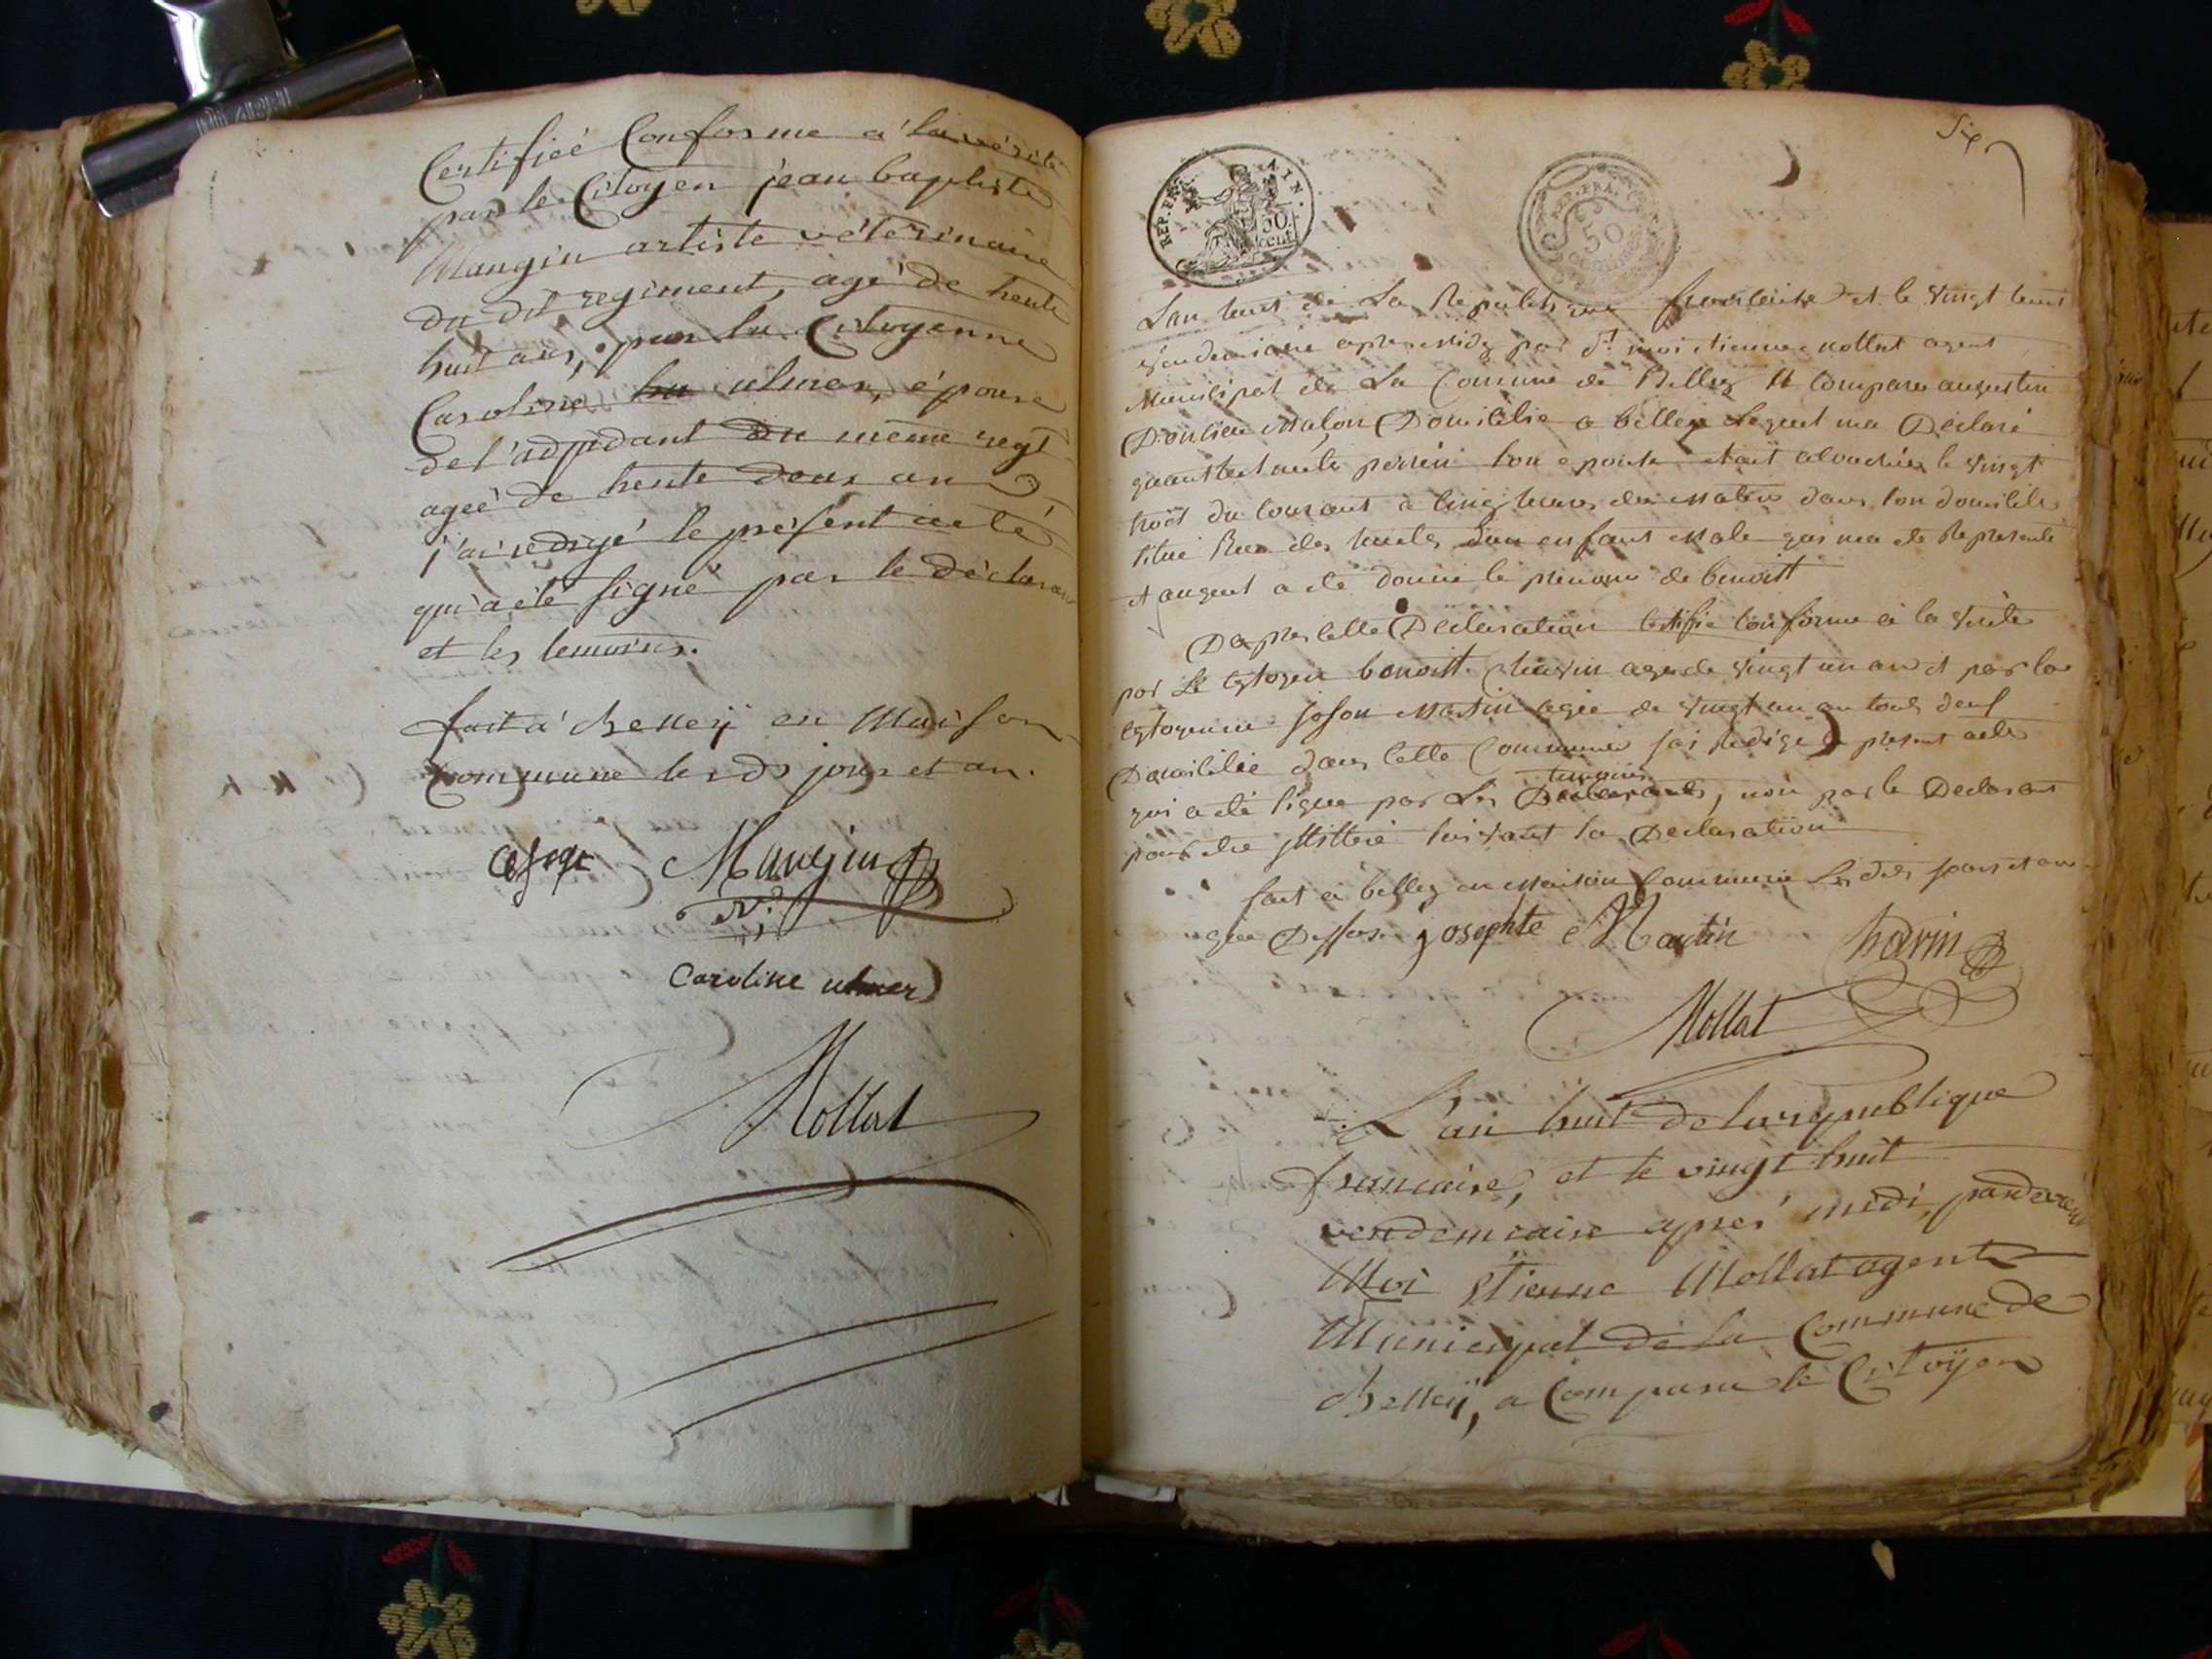 Certifiéé Conforme a' la vérité
par le Citoyen jean baptiste
Mangin artiste vétérinaire
du dit regiment, agé de trente
huit ans, par la Citoyenne
Caroline ulmer, épouse
de l'adjudant du même regt
ageé de trente deux ans
j'ai redigé le présent acte
qui a été signé par le déclarant
et les temoins.
fait a' Belley en Maison
Commune les ds jour et an.
Mangin
Caroline ulmer
Mollat
Six
REP. FRA.
AIN.
50
cent
REP. FRA.
50
Lan huit de La Republique francaise et le vingt huit
vendemiaire apres midy par dt moi etienne mollat agent
Municipal de La Commune de Belley a comparu augustin
Domicilié a belley lequel ma Déclaré
son epouse etait acouchée le vingt
trois du courant a cinq heures du Matin dans son domicile
situé Rue des d'un enfant Male qui ma ete Represente
et auquel a ete donné le prenom de benoist
Dapres cette Déclaration certifié conforme a la verité
par Le Cytoyen benoist age de vingt un an et par la
Cytoyenne Martin agée de vingt un an tous deux
Domicilié dans cette Commune jai Redigé le present acte
temoins
qui a eté signé par Les Déclarants, non par le Declarant
pour etre illitteré suivant sa Declaration
fait a belley en Maison Commune Les dits jours et an
que Dessus. josephte Martin
Mollat
L'an huit de la republique
francaise, et le vingt huit
vendemiaire aprés midi, pardevent
Moi Etienne Mollat agent
Municipal de la Commune de
Belleÿ, a Comparu le Citoÿen